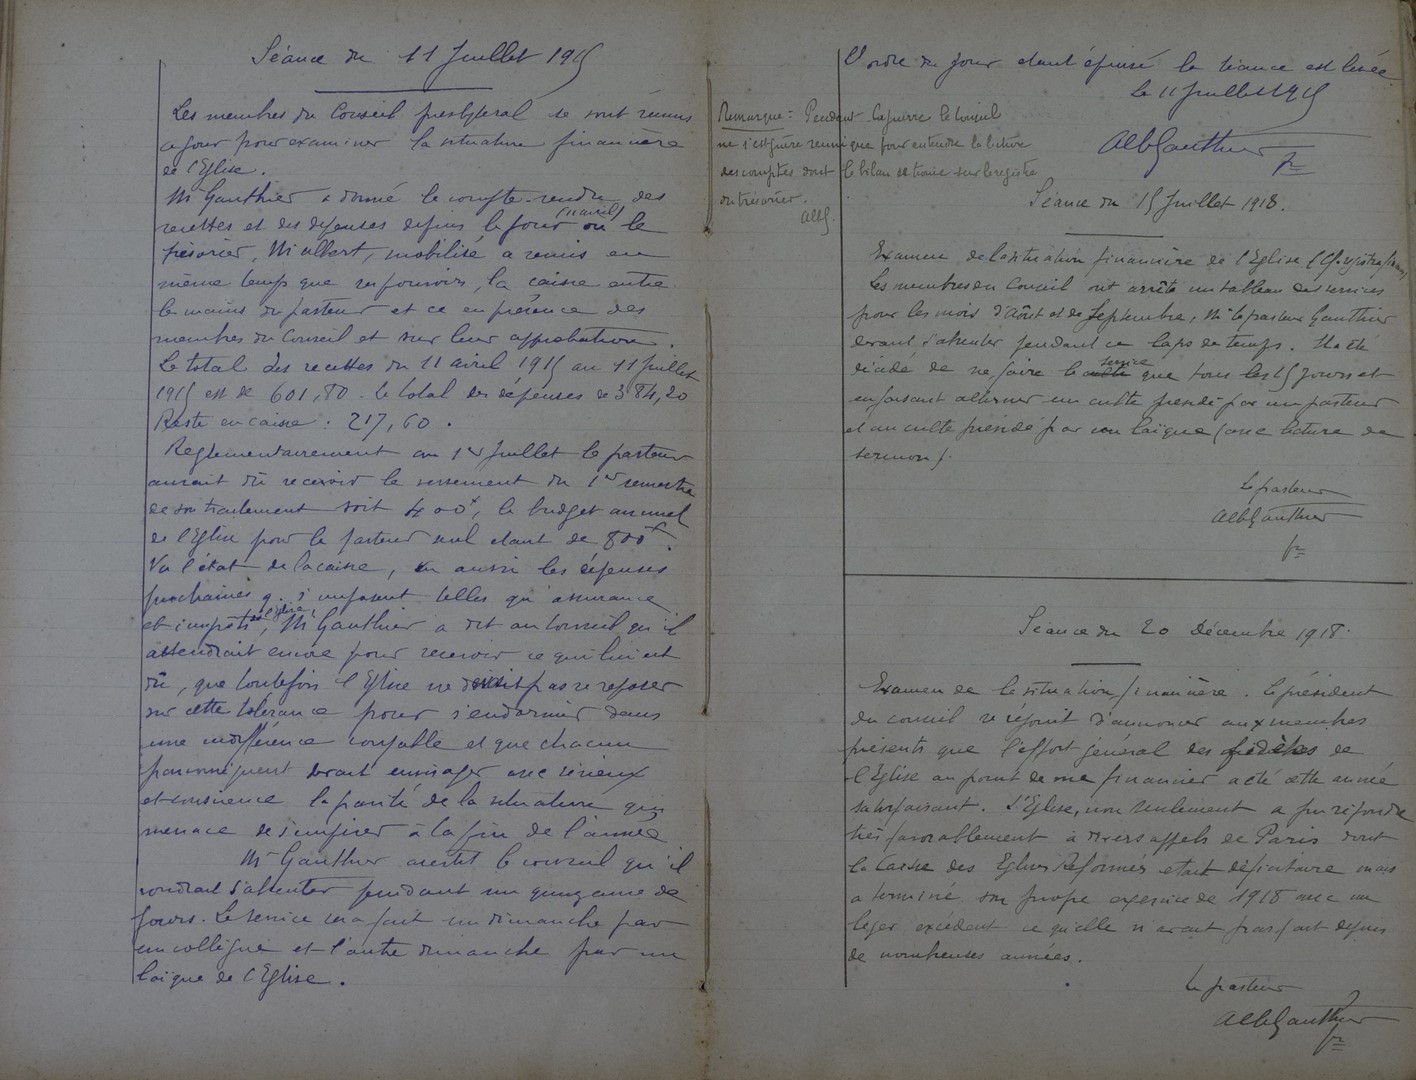 Séance du 11 Juillet 1915
Les membres du Conseil presbytéral se sont réunis
ce jour pour examiner la situation financière
de l'Eglise.
Mr Gauthier a donné le compte-rendu des
recettes et des dépenses depuis le jour (11 avril) où le
trésorier, Mr Albert, mobilisé a remis en
même temps que ses pouvoirs, la caisse entre
les mains du pasteur et ce en présence des
membres du Conseil et sur leur approbation.
Le total des recettes du 11 avril 1915 au 11 Juillet
1915 est de 601,80. le total des dépenses de 384,20
Reste en caisse : 217,60.
Réglementairement au 1er Juillet le pasteur
aurait dû recevoir le versement du 1er semestre
de son traitement soit 400f, le budget annuel
de l'Eglise pour le pasteur seul étant de 800f.
Vu l'état de la caisse, vu aussi les dépenses
prochaines q. s'imposent telles qu'assurance
et impôts de l'Eglise, Mr Gauthier a dit au Conseil qu'il
attendrait encore pour recevoir ce qui lui est
dû, que toutefois l'Eglise ne devait pas se reposer
sur cette tolérance pour s'endormir dans
une indifférence coupable et que chacun
par conséquent devait envisager avec sérieux
et conscience la gravité de la situation qui
menace de s'empirer à la fin de l'année
Mr Gauthier avertit le conseil qu'il
voudrait s'absenter pendant une quinzaine de
jours. Le service sera fait un dimanche par
un collègue et l'autre dimanche par un
laïque de l'Eglise.
L'ordre du jour étant épuisé la séance est levée
le 11 Juillet 1915
Alb Gauthier pr
Remarque : Pendant la guerre le Conseil
ne s'est guère réuni que pour entendre la lecture
des comptes dont le bilan se trouve sur le registre
du trésorier.
AlbG.
Séance du 15 Juillet 1918.
Examen de la situation financière de l'Eglise (Cf. registre
Les membres du Conseil ont arrêté un tableau des services
pour les mois d'Août et de Septembre, Mr le pasteur Gauthier
devant s'absenter pendant ce laps de temps. Il a été
décidé de ne faire le culte service que tous les 15 jours et
en faisant alterner un culte présidé par un pasteur
et un culte présidé par un laïque (avec lecture de
sermon).
Le pasteur
Alb Gauthier
pr
Séance du 20 Décembre 1918.
Examen de la situation financière. Le président
du conseil se réjouit d'annoncer aux membres
présents que l'effort général des fidèles de
l'Eglise au point de vue financier a été cette année
satisfaisant. L'Eglise, non seulement a pu répondre
très favorablement à divers appels de Paris dont
la Caisse des Eglises Réformées était déficitaire mais
a terminé son propre exercice de 1918 avec un
léger excédent ce qu'elle n'avait pas fait depuis
de nombreuses années.
Le pasteur
Alb Gauthier
pr